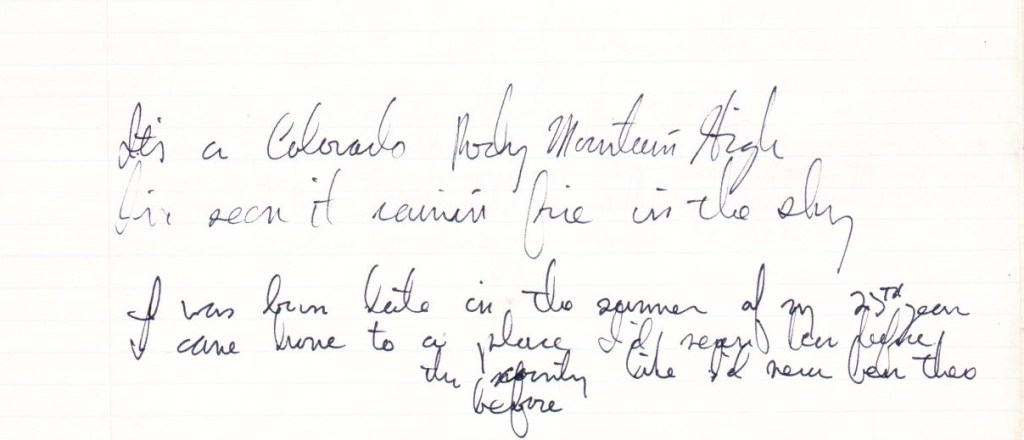 It's a Colorado Rocky Mountain High
I've seen it rainin fire in the sky
I was born late in the summer of my year
I came home to a place I'd never been before
the like I'd never been there
before